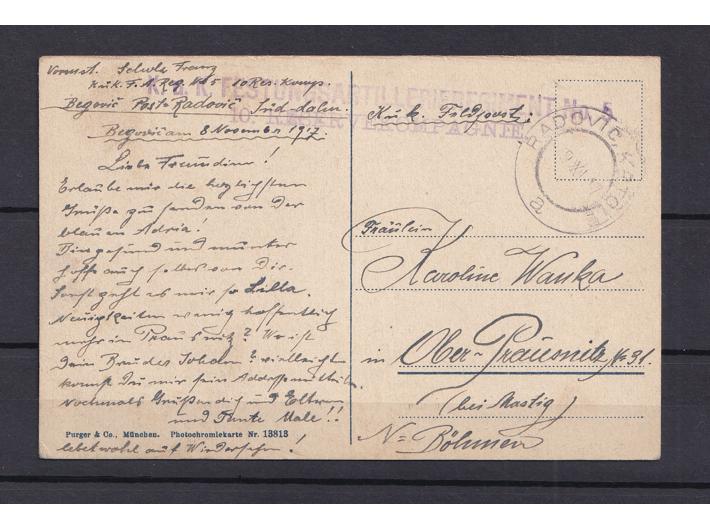 Vormst. Scholz Franz
K.u.K. F.A.Reg. No 5 10 Res. Komp.
Begović Posto Radović Süd-dalm.
K. u. K. FESTUNGSARTILLERIEREGIMENT Nr. 5
10. RESERVEKOMPAGNIE
K.u.K. Feldpost
RADOVIĆI, KATOLE
a
Begović am 8 November 1917.
Liebe Freundin!
Erlaube mir die herzlichsten
Grüße zu senden von der
blauen Adria!
Bin gesund und munter
hoffe auch selbes von Dir.
Sonst geht es mir so Lilla.
Neuigkeiten wenig hoffentlich
mehr in Prausnitz? Wo ist
Dein Bruder Johann? vielleicht
kannst Du mir sein Addresse
Nochmals Grüße an dich und Eltern
und Tante Male!!
lebet wohl auf Wiedersehn!
Purger & Co., München. Photochromiekarte Nr. 13813
Fräulein
Karoline Wanka
in Ober-Prausnitz No 91.
(bei Mastig)
N= Böhmen